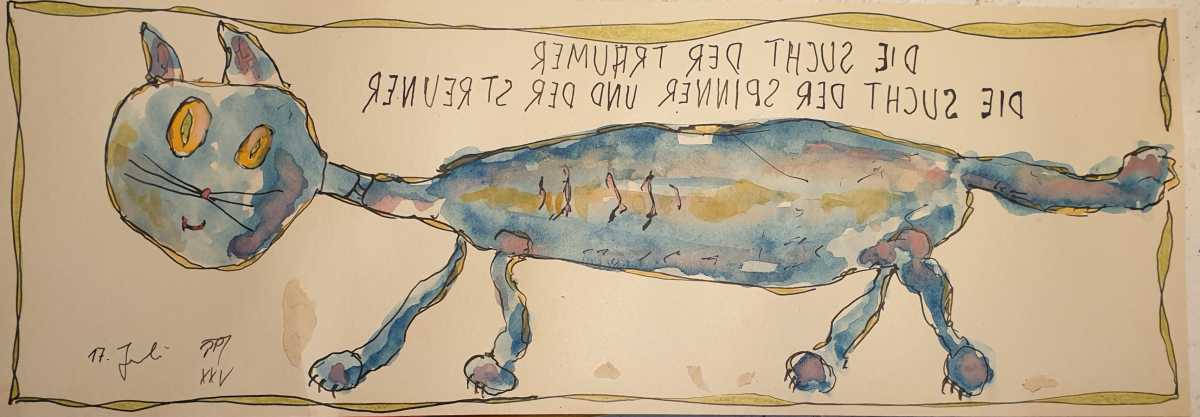 DIE SUCHT DER TRÄUMER
DIE SUCHT DER SPINNER UND DER STREUNER
17. Juli
XXV